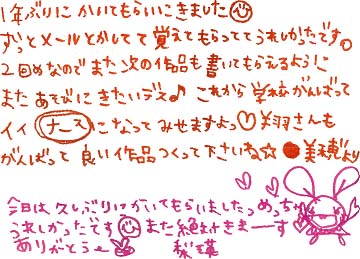 1年ぶりにかいてもらいにきました
ずっとメールとかしてて覚えてもらっててうれしかったです。
2回めなのでまた次の作品も書いてもらえるように
またあそびにきたいデス♪これから学校がんばって
イイナースになってみせますよっ♡美羽さんも
がんばって良い作品つくって下さいね☆●美穂より
今日は久しぶりにかいてもらいましたつめっちゃ
うれしかったですまた絶対きまーす
ありがとう〜